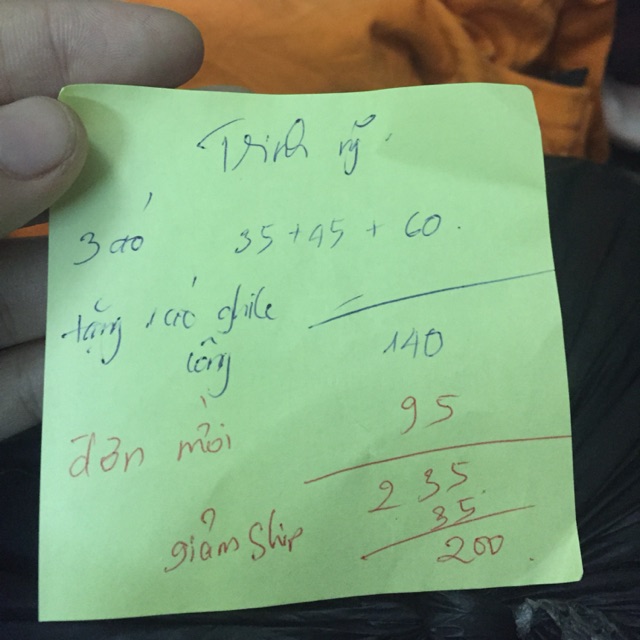 Trinh
3 áo 35 + 45 + 60.
tặng 1 áo ghile
cộng 140
đơn mới 95
235
35
giảm ship 200